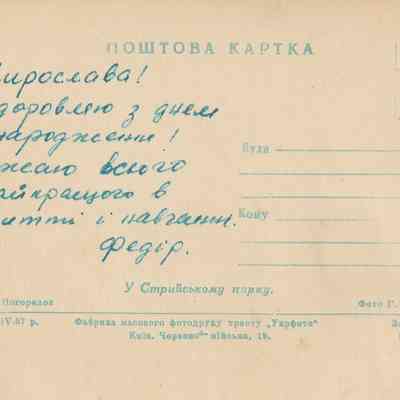 ПОШТОВА КАРТКА
Мирослава!
здоровлю з днем
народження!
жаю всього
айкращого в
итті і навчанні.
Федір.
Куди
Кому
У Стрийському парку.
Погорєлов
Фото Г.
IV-57 р.
Фабрика масового фотодруку тресту „Укрфото“
Київ, Червоноармійська, 19.